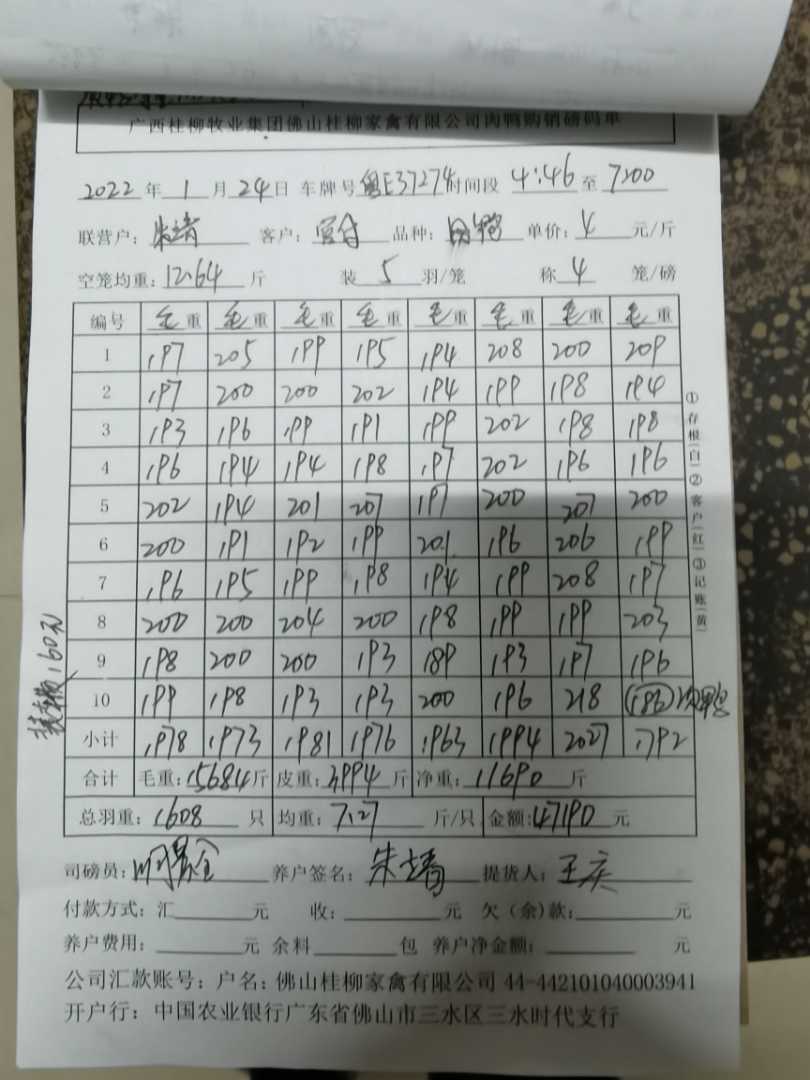 广西桂柳牧业集团佛山桂柳家禽有限公司肉鸭购销磅码单
2022 年 1 月 24 日 车牌号 粤E37274 时间段 4:46 至 7:00
联营户: 朱靖 客户: 品种: 单价: 4 元/斤
空笼均重: 12.64 斤 装 5 羽/笼 称 4 笼/磅
编号 毛重 毛重 毛重 毛重 毛重 毛重 毛重 毛重
1 197 205 199 195 194 208 200 209
2 197 200 200 202 194 199 198 194
3 193 196 199 191 199 202 198 198
4 196 194 194 198 197 202 196 196
5 202 194 201 207 197 200 207 200
6 200 191 192 199 201 196 206 199
7 196 195 199 198 194 199 208 197
8 200 200 204 200 198 199 199 203
9 198 200 200 193 189 193 197 196
10 199 198 193 193 200 196 218 (196)
小计 1978 1973 1981 1976 1963 1994 2027 1792
合计 毛重: 15684 斤 皮重: 3994 斤 净重: 11690 斤
总羽重: 1608 只 均重: 7.27 斤/只 金额: 47190 元
160元
①存根(白)②客户(红)③记账(黄)
司磅员: 养户签名: 朱靖 提货人: 王庆
付款方式: 汇 元 收: 元 欠(余)款: 元
养户费用: 元 余料 包 养户净金额: 元
公司汇款账号: 户名: 佛山桂柳家禽有限公司 44-442101040003941
开户行: 中国农业银行广东省佛山市三水区三水时代支行